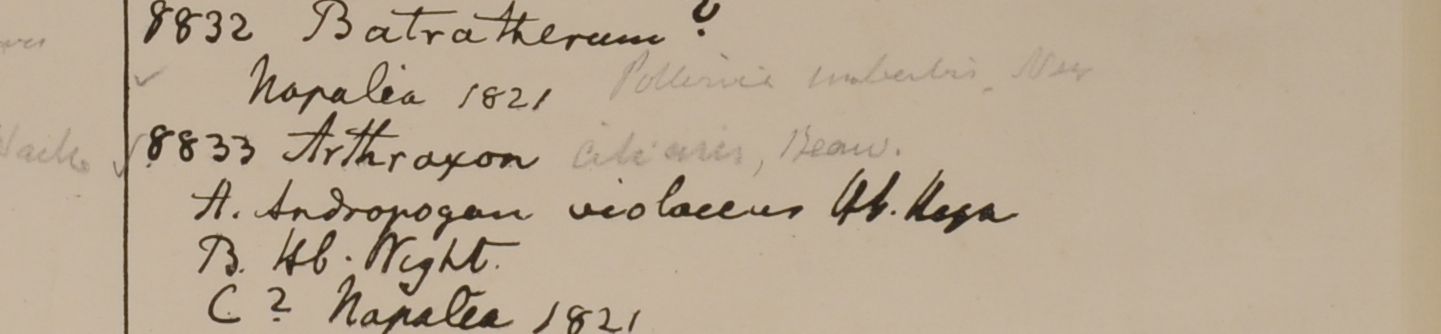 8832 Batratherum?
Napalia 1821 Pollinia imberbis, Nees
8833 Arthraxon ciliaris, Beauv.
A. Andropogon violaceus Hb. Heyn
B. Hb. Wight.
C? Napalia 1821